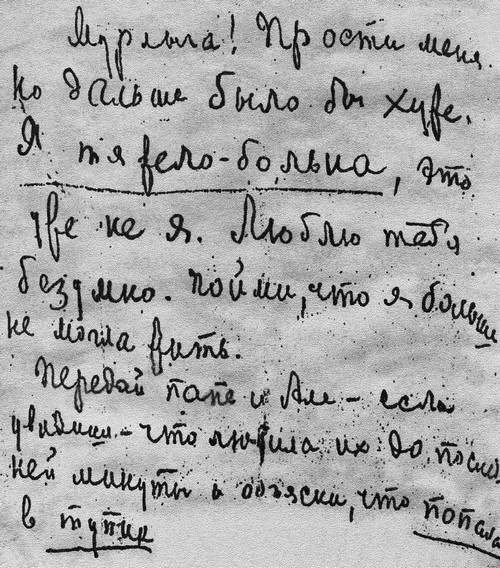 Мурлыга! Прости меня.
Но дальше было бы хуже.
Я тяжело-больна, это
уже не я. Люблю тебя
безумно. Пойми, что я больше
не могла жить.
Передай папе и Але – если
увидишь – что любила их до послед
ней минуты и объясни, что попала
в тупик